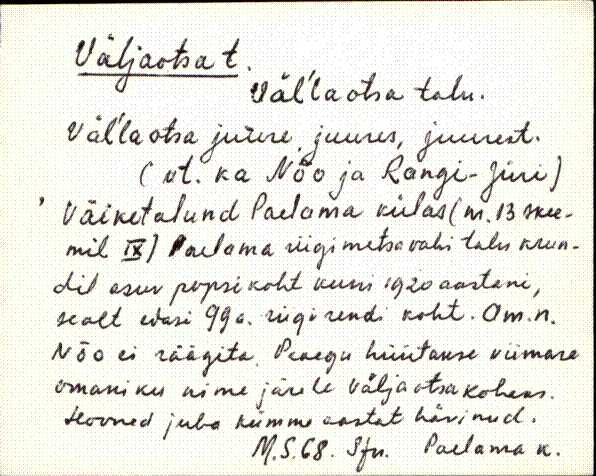 Väljaotsa t.
Väl'laotsa talu.
Väl'laotsa juure, juures, juurest.
(vt. ka Nõo ja Rangi-Jüri)
Väiketalund Paelama külas (m. 13 skee-
mil IX) Paelama riigimetsavahi talu krun-
dil asuv popsikoht kuni 1920 aastani,
sealt edasi 99a. riigirendi koht. Om.n.
Nõo ei räägita. Praegu hüütakse viimase
omaniku nime järele Väljaotsa kohaks.
Hooned juba kümme aastat hävinud.
M.S.68. Paelama k.